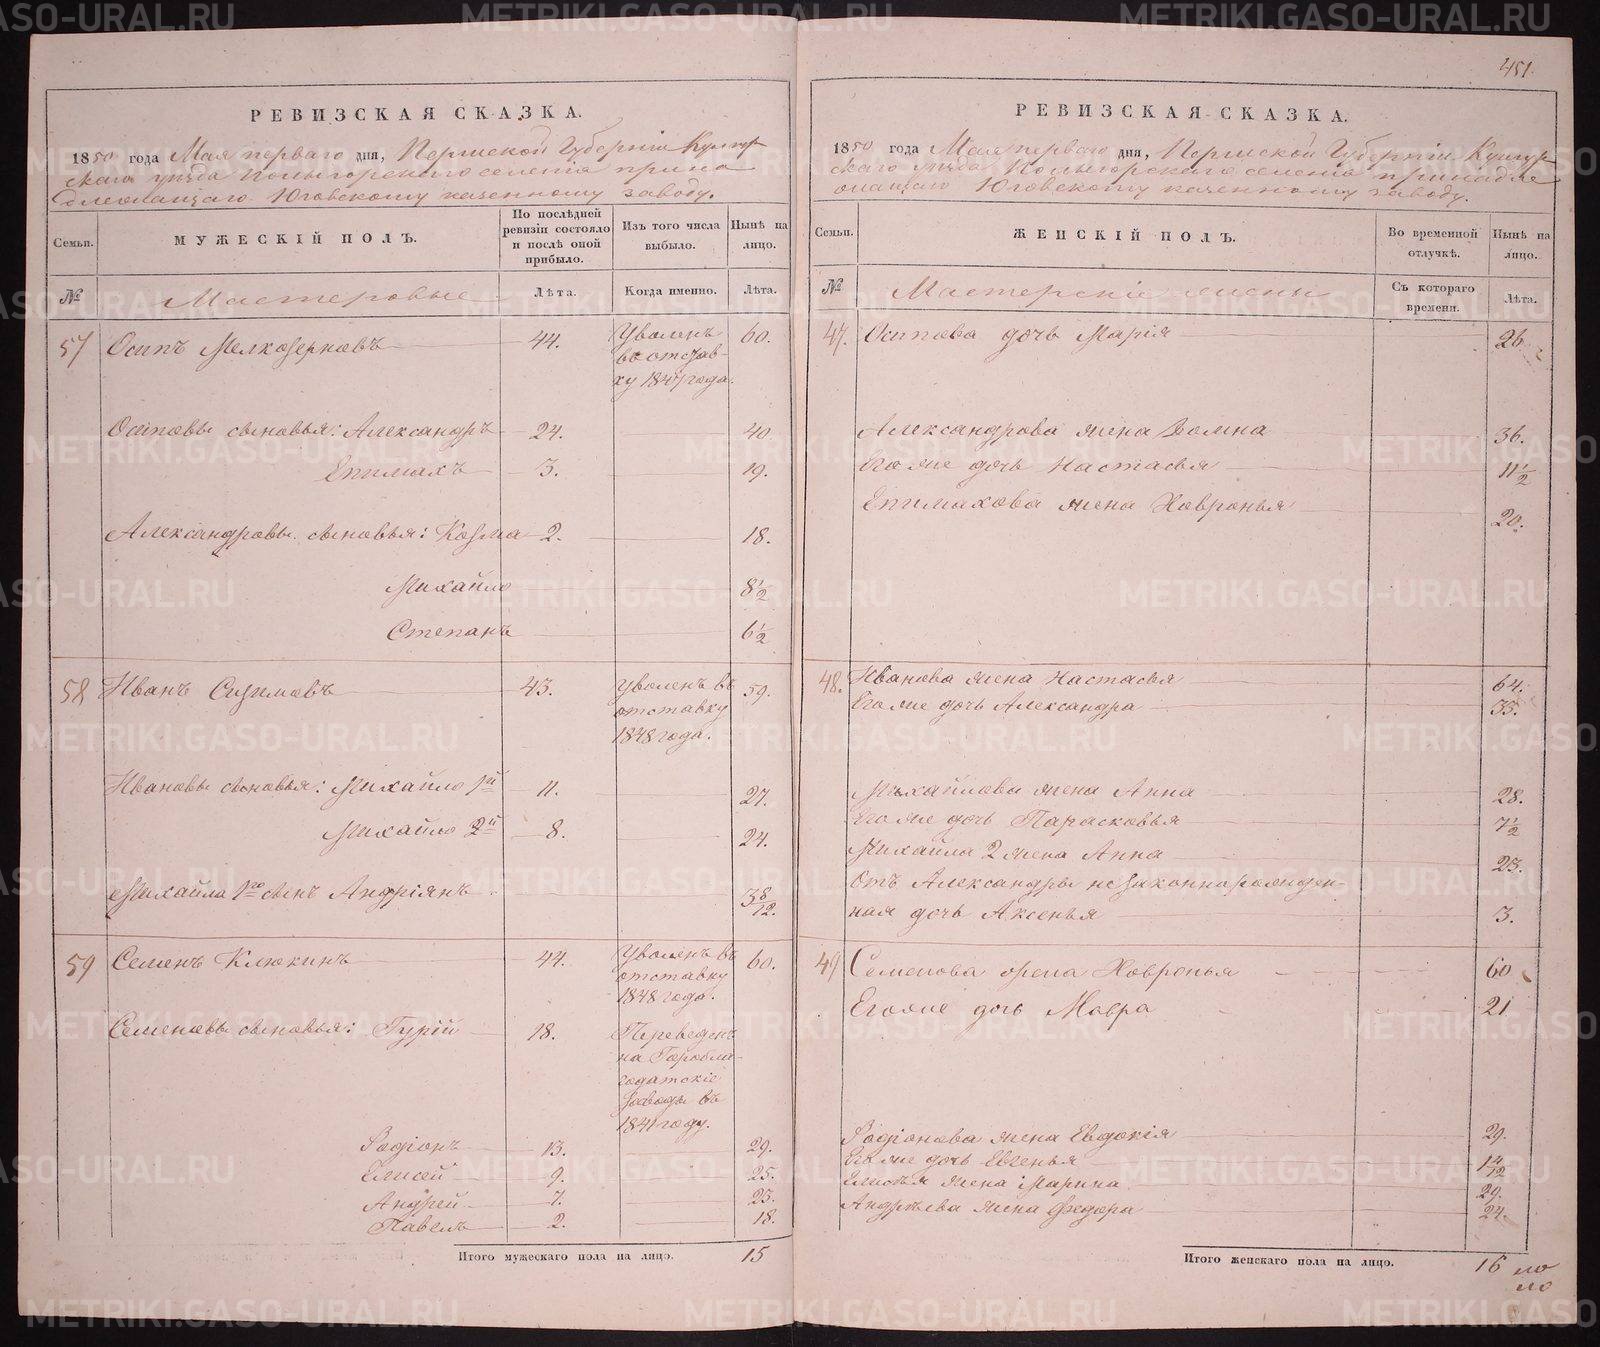 451.
РЕВИЗСКАЯ СКАЗКА.
1850 года Мая перваго дня, Пермской Губерніи Кунгур
скаго уѣзда селенія прина
длежащаго Юговскому казенному заводу.
Семьи.
МУЖЕСКІЙ ПОЛЪ.
По послѣдней ревизіи состояло и послѣ оной прибыло.
Изъ того числа выбыло.
Нынѣ на лицо.
№
Мастеровые
Лѣта.
Когда именно.
Лѣта.
57 Осипъ Мелкозерновъ 44. Уволенъ 60.
въ отстав-
ку 1847 года.
Осиповы сыновья: Александръ 24. 40.
Епимахъ 3. 19.
Александровы сыновья: Козма 2. 18.
Михайло 8 1/2
Степанъ 6 1/2
58 Иванъ 43. Уволенъ въ 59.
отставку
1848 года.
Ивановы сыновья: Михайло 1й 11. 27.
Михайло 2й 8. 24.
Михайла 1го сынъ Андріянъ 3 8/12.
59 Семенъ Клюкинъ 44. Уволенъ въ 60.
отставку
1848 года.
Семеновы сыновья: Гурій 18. Переведенъ
на Горобла-
годатскіе
заводы въ
1841 году.
Родіонъ 13. 29.
Елисей 9. 25.
Андрей 7. 23.
Павелъ 2. 18.
Итого мужескаго пола на лицо. 15
РЕВИЗСКАЯ СКАЗКА.
1850 года Мая перваго дня, Пермской Губерніи Кунгур
скаго уѣзда селенія принадле
жащаго Юговскому казенному заводу.
Семьи.
ЖЕНСКІЙ ПОЛЪ.
Во временной отлучкѣ.
Нынѣ на лицо.
№
Мастерскіе жены
Съ котораго времени.
Лѣта.
47. Осипова дочь Марія 26.
Александрова жена Домна 36.
Его же дочь Настасья 11 1/2
Епимахова жена Ховронья 20.
48. Иванова жена Настасья 64.
Его же дочь Александра 33.
Михайлова жена Анна 28.
Его же дочь Парасковья 7 1/2
Михайла 2 жена Анна 23.
Отъ Александры незаконнорожден-
ная дочь Аксенья 3.
49 Семенова жена Ховронья 60
Его же дочь Мавра 21
Родіонова жена Евдокія 29.
Его же дочь Евгенья
Елисѣя жена Марина 29.
Андрѣева жена Федора 24.
Итого женскаго пола на лицо. 16
METRIKI.GASO-URAL.RU